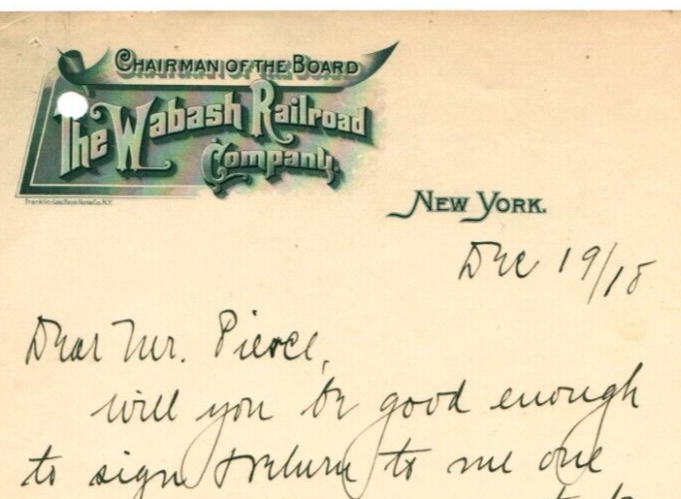 CHAIRMAN OF THE BOARD
The Wabash Railroad
Company.
Franklin-Lee Bank Note Co. N.Y.
NEW YORK.
Dec 19/18
Dear Mr. Pierce,
will you be good enough
to sign & return to me one